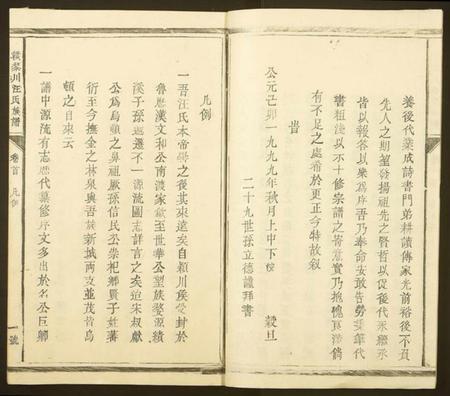 養後代業成詩書門弟耕讀傳家光前裕後不負
先人之期望發揚祖先之賢哲以促後代永繼承
昔以報答以眾為序吾乃奉命安敢告勞
書粗淺以不十修宗譜之旨意實乃抱愧
有不足之處希於更正今特故叙
旹
公元己卯一九九九年秋月上中下浣 穀旦
二十九世孫立德謹拜書
凡例
一吾汪氏本帝嚳之後其來遠矣自潁川侯受封於
魯歷漢文和公南渡家歙至世華公望族婺源績
溪子孫遞遷不一源流圖志詳言之矣迨宋叔獻
公為烏頓之鼻祖厥孫信民公崇祀鄉賢子姓蕃
衍至今撫金之林泉與吾族新城兩支並茂皆烏
頓之自來云
一譜中源流有志歷代纂修序文多出於名公巨卿
川汪氏族譜 卷首 凡例 一號